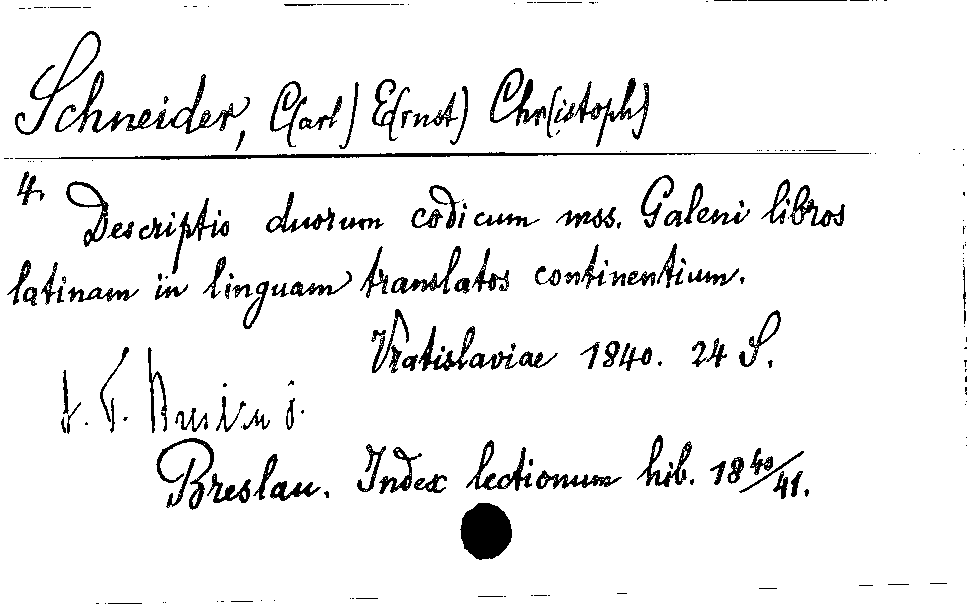 Schneider, C(arl) E(rnst) Chr(istoph)
4. Descriptio duorum codicum mss. Galeni libros
latinam in linguam translatos continentium.
Vratislaviae 1840. 24 S.
Breslau. Index lectionum hib. 1840/41.